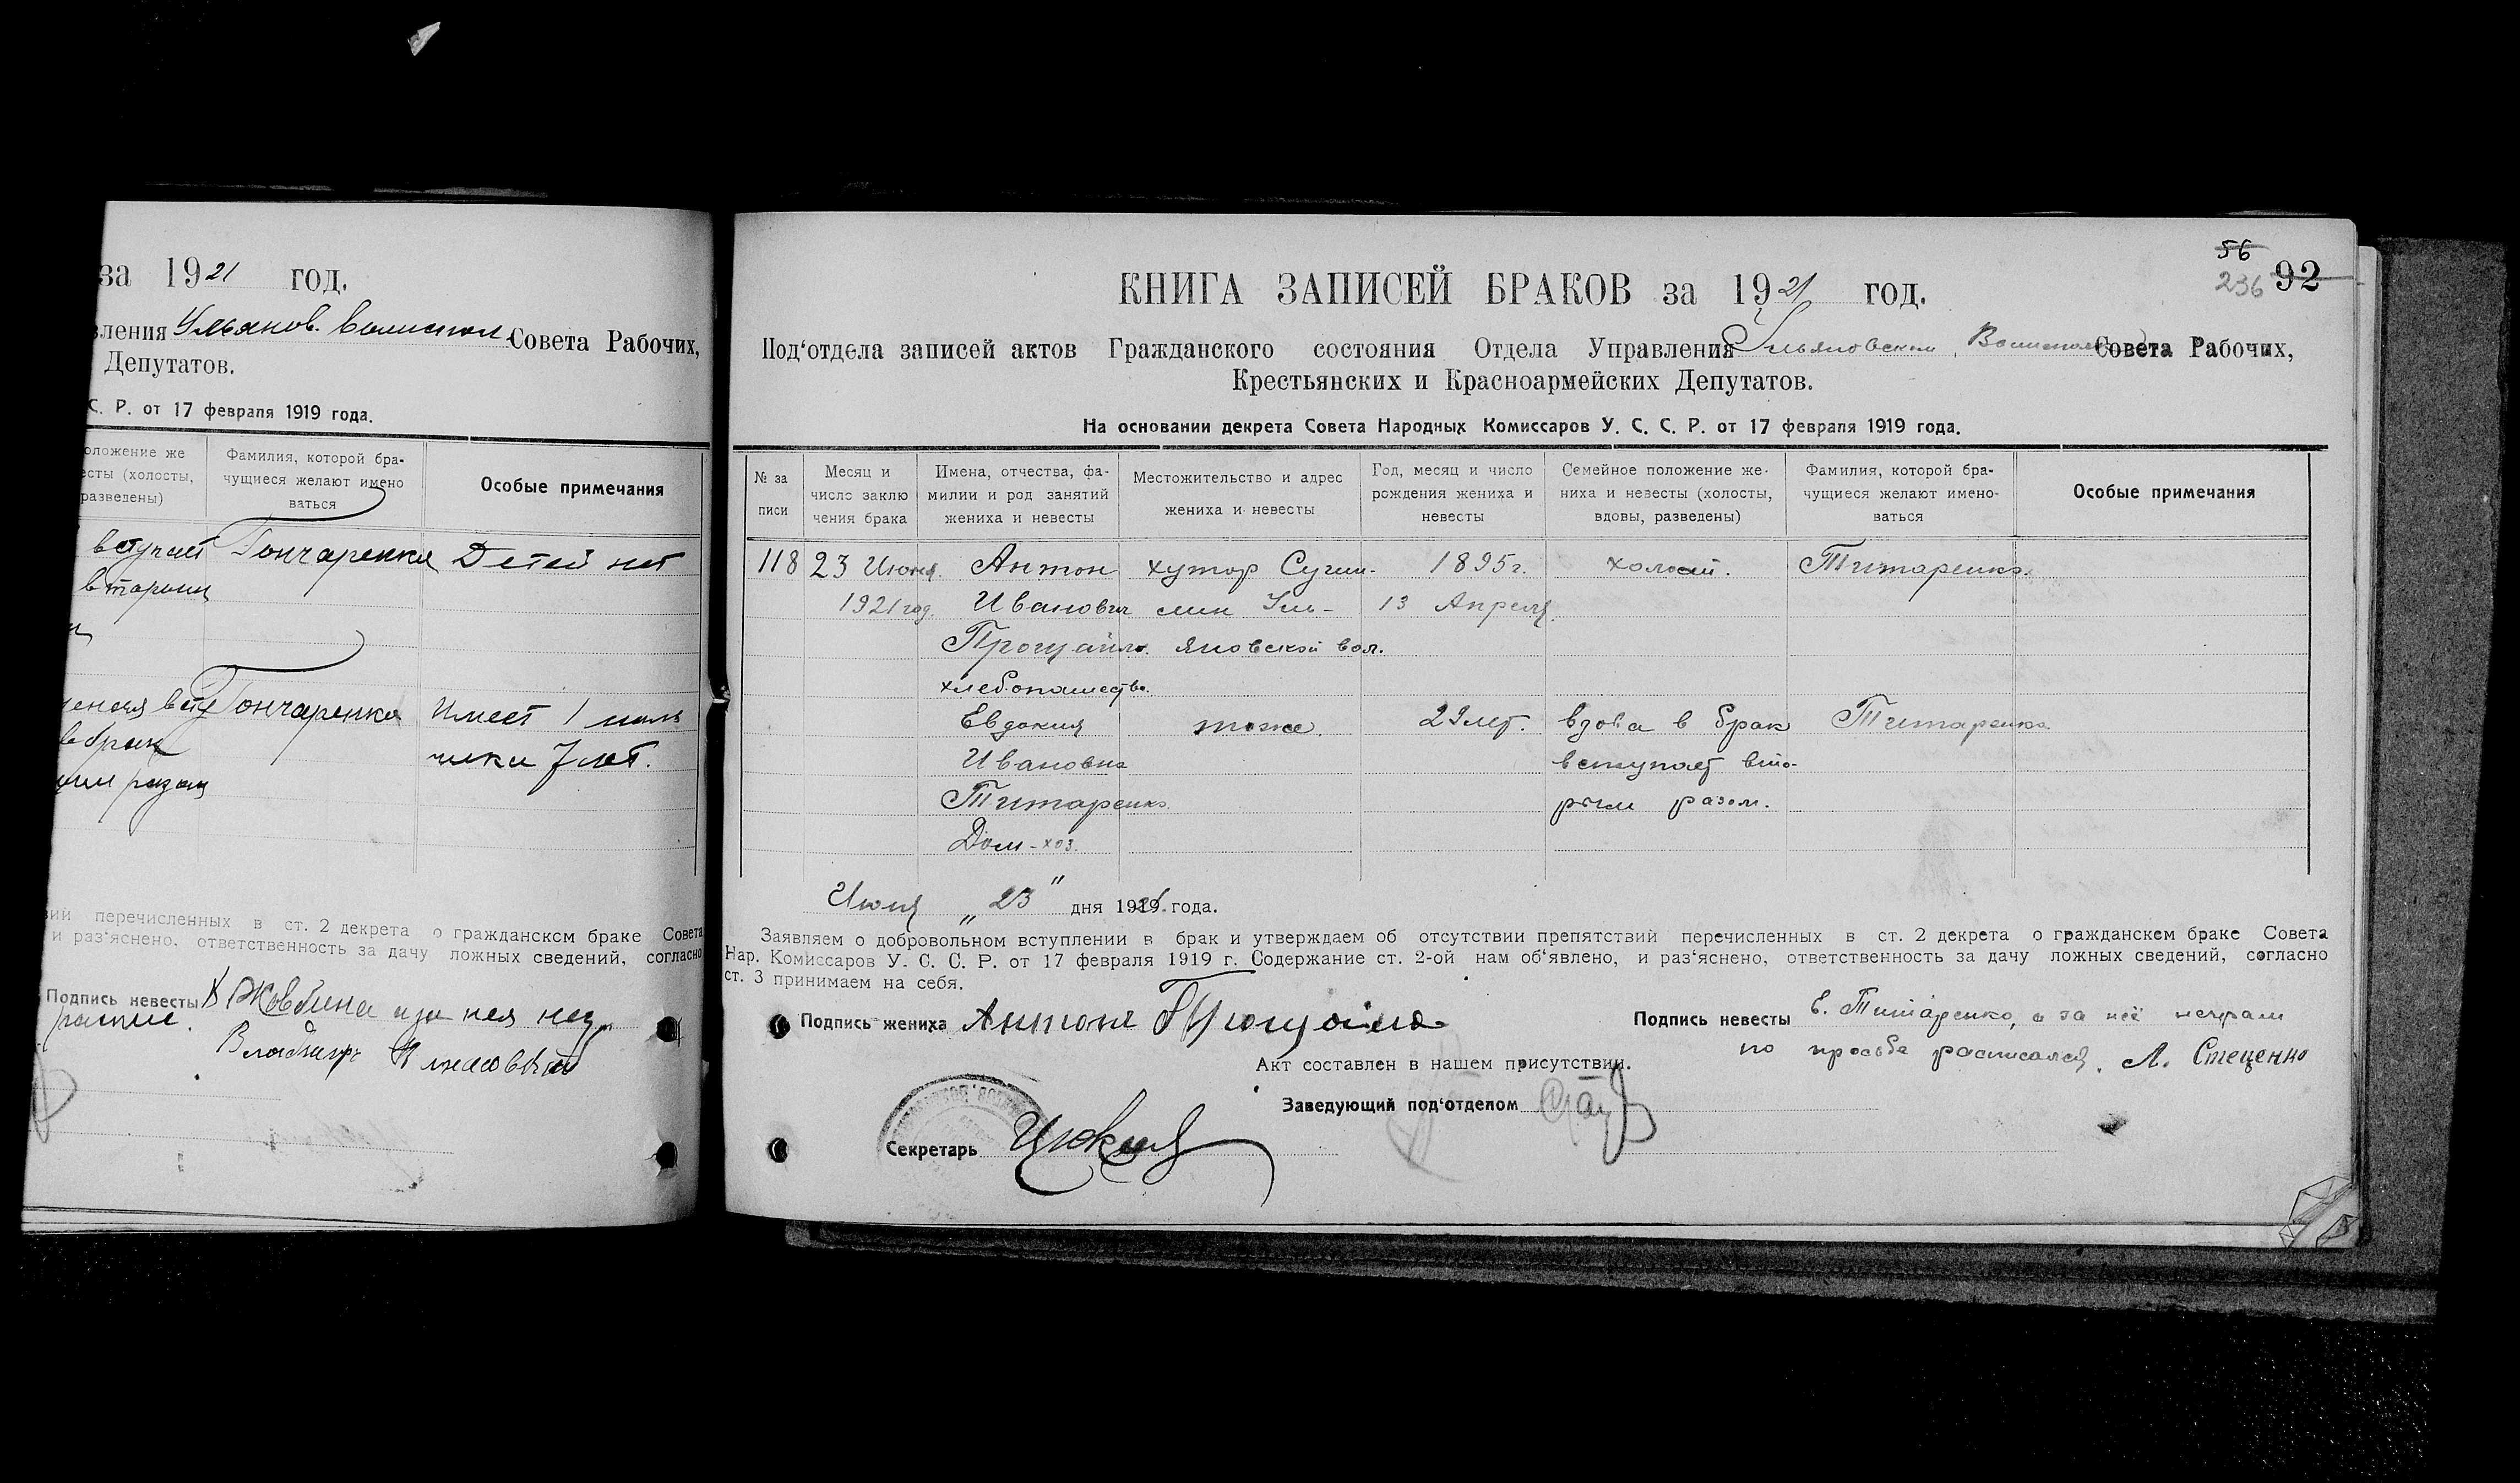 за 1921 год.
вления Ульянов. волисполк. Совета Рабочих,
Депутатов.
С. Р. от 17 февраля 1919 года.
оложение же
есты (холосты,
разведены)
Фамилия, которой бра-
чущиеся желают имено
ваться
Особые примечания
вступает Гончаренко Детей нет
вторым
Гончаренко Имеет 1 маль
в брак чика 7 лет.
разом
вий перечисленных в ст. 2 декрета о гражданском браке Совета
и раз'яснено, ответственность за дачу ложных сведений, согласно
Подпись невесты
Владимир
56
236 92
КНИГА ЗАПИСЕЙ БРАКОВ за 1921 год.
Под'отдела записей актов Гражданского состояния Отдела Управления Ульяновской Волисполк Совета Рабочих,
Крестьянских и Красноармейских Депутатов.
На основании декрета Совета Народных Комиссаров У. С. С. Р. от 17 февраля 1919 года.
№ за
писи
Месяц и
число заклю
чения брака
Имена, отчества, фа-
милии и род занятий
жениха и невесты
Местожительство и адрес
жениха и невесты
Год, месяц и число
рождения жениха и
невесты
Семейное положение же-
ниха и невесты (холосты,
вдовы, разведены)
Фамилия, которой бра-
чущиеся желают имено-
ваться
Особые примечания
118 23 Июня. Антон хутор 1895 г. холост. Титаренко.
1921 год. Иванович Уль- 13 Апреля
Прощайло. яновской вол.
хлебопашество.
Евдокия тоже. 29 лет. вдова в брак Титаренко
Ивановна вступает вто-
Титаренко. рым разом.
Дом-хоз.
Июня „23" дня 1921 года.
Заявляем о добровольном вступлении в брак и утверждаем об отсутствии препятствий перечисленных в ст. 2 декрета о гражданском браке Совета
Нар. Комиссаров У. С. С. Р. от 17 февраля 1919 г. Содержание ст. 2-ой нам об'явлено, и раз'яснено, ответственность за дачу ложных сведений, согласно
ст. 3 принимаем на себя.
Подпись жениха Антон Прощайло
Подпись невесты Е. Титаренко, а за неё неграм
по просьбе расписался. А. Стеценко
Акт составлен в нашем присутствии.
Заведующий под'отделом
Секретарь